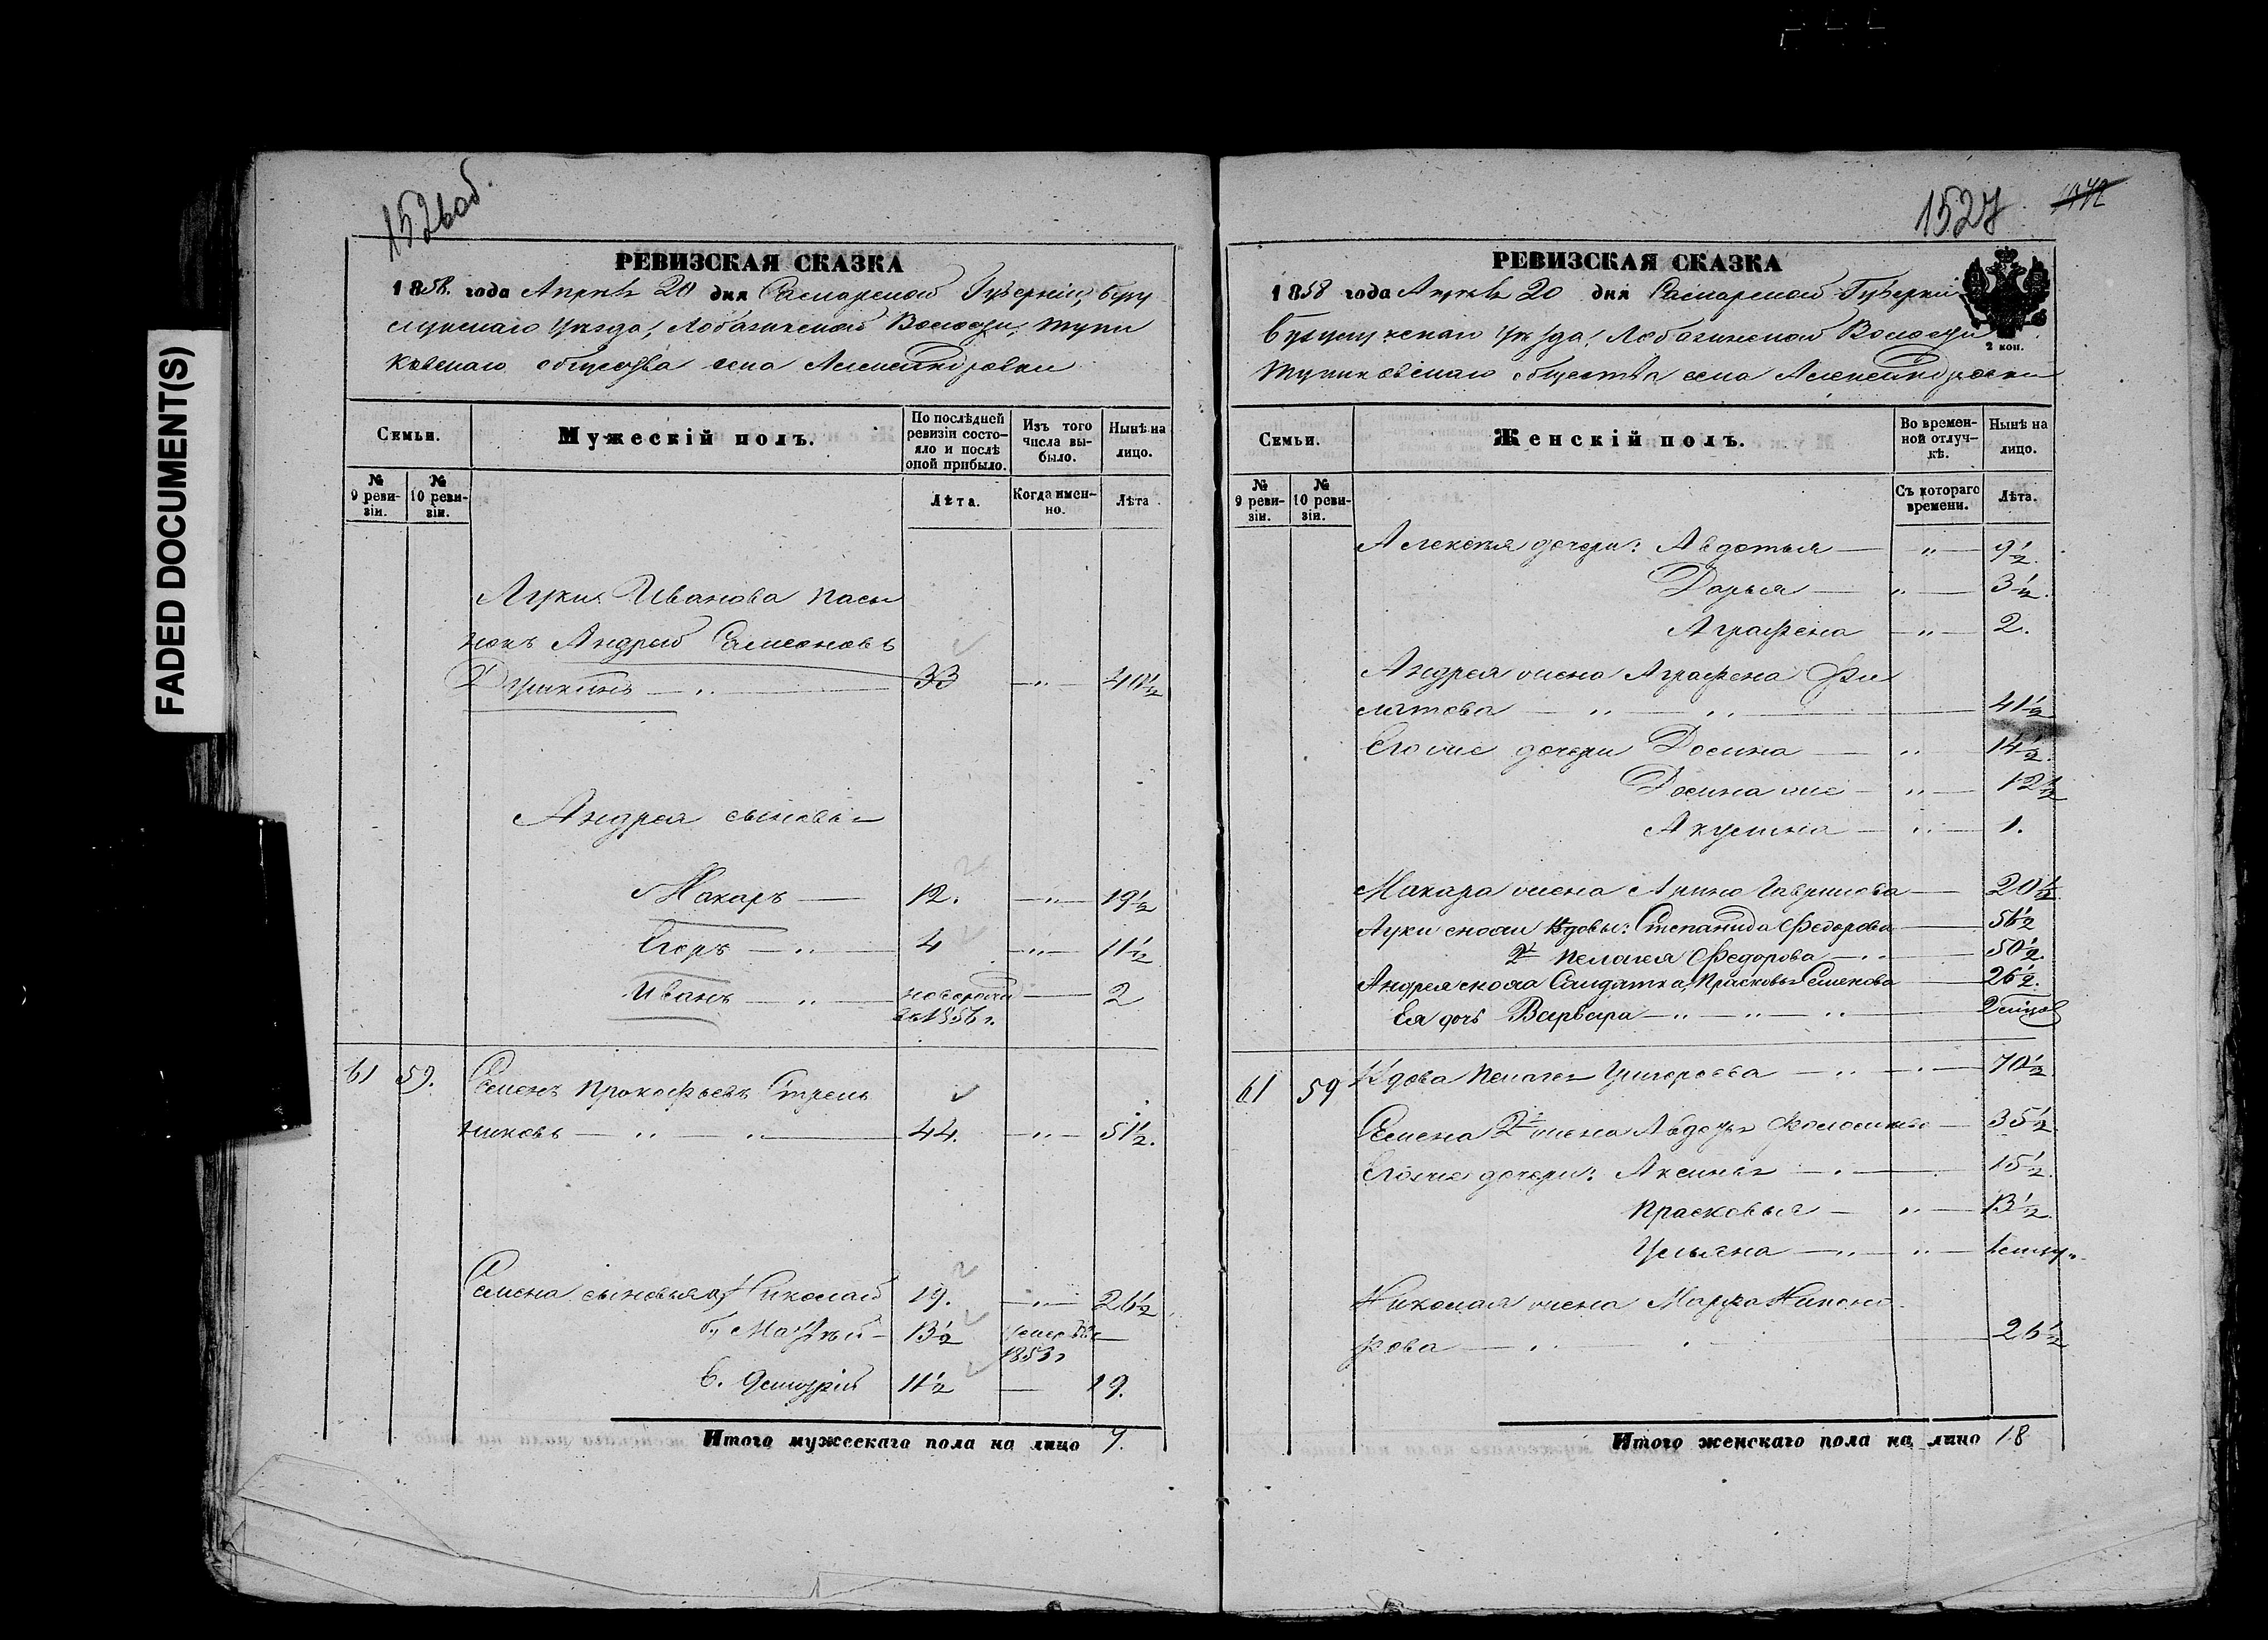 FADED DOCUMENT(S)
1526об.
РЕВИЗСКАЯ СКАЗКА
1858. года Апрѣля 20 дня Самарской Губерніи, Бузу
лукскаго уѣзда, Лобазинской Волости,
ковскаго общества села Александровки
Семьи.
Мужескій полъ.
По послѣдней ревизіи состо-
яло и послѣ оной прибыло.
Изъ того числа вы-
было.
Нынѣ на лицо.
№ 9 реви-
зіи.
№ 10 реви-
зіи.
Лѣта.
Когда имен-
но.
Лѣта
Луки Иванова пасы
нокъ Андрей Семеновъ
33 —„— 40½
Андрея сыновья
Макаръ — 12. —„— 19½
Егоръ —„— 4 —„— 11½
Иванъ —„— новорожд — 2
въ 1856 г.
61 59. Семенъ Прокофьевъ Стрель
никовъ —„—„— 44. —„— 51½.
Семена сыновья а, Николай 19. —„— 26½
б, Матвей — 13½ умеръ въ —
1853 г
в. Дмитрій 11½ — 19.
Итого мужескаго пола на лицо 7.
1527
РЕВИЗСКАЯ СКАЗКА
1858 года Апрѣля 20 дня Самарской Губерніи
Бузулукскаго уѣзда, Лобазинской Волости
общества села Александровки
2 коп.
Семьи.
Женскій полъ.
Во времен-
ной отлуч-
кѣ.
Нынѣ на лицо.
№ 9 реви-
зіи.
№ 10 реви-
зіи.
Съ котораго времени.
Лѣта.
Алексея дочери: Авдотья — „ — 9½.
Дарья — „ — 3½.
Аграфена — „ — 2.
Андрея жена Аграфена Фи
латова — „ — „ — 41½
Его же дочери Домна — „ — 14½.
Домна же — „ — 12½
Акулина — „ — 1.
Макара жена Арина Гаврилова — 20½
Луки снохи вдовы: Степанида Федорова — 56½
2я Пелагея Федорова —„— 50½.
Андрея сноха Салдатка Прасковья Семенова — 26½.
Ея дочь Варвара —„—„—„—
61 59 Вдова Пелагея Григорьева —„—„— 70½
Семена 2я жена Авдотья — 35½
Его же дочери: Аксинья —„— 15½.
Прасковья — „ — 13½.
Ульяна —„—„—
Николая жена Марфа Никано
рова —„— 26½
Итого женскаго пола на лицо 18